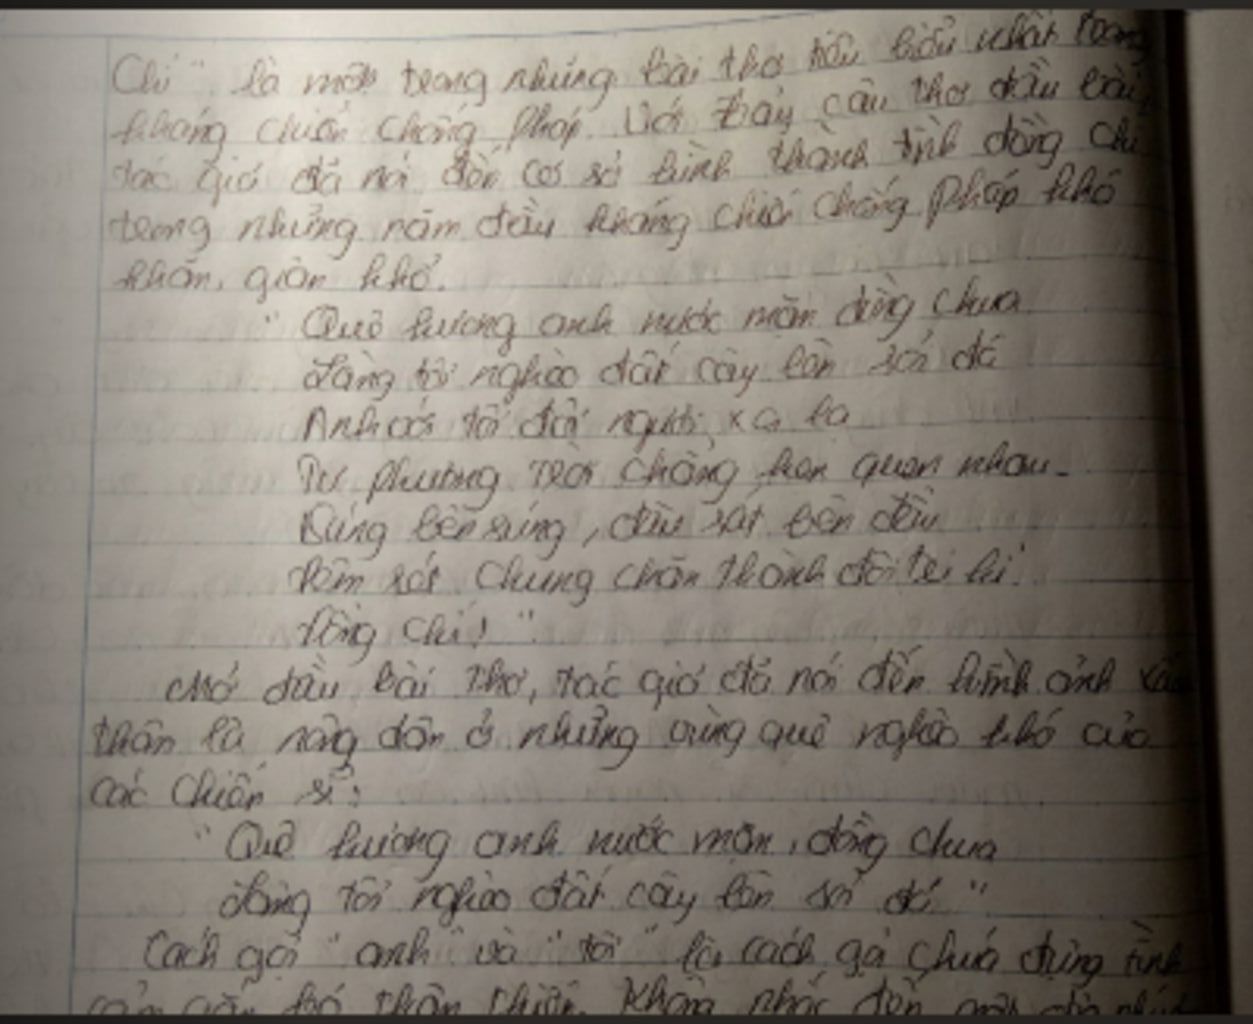 Chí" là một trong những bài thơ tiêu biểu nhất trong
kháng chiến chống Pháp. Với bảy câu thơ đầu bài,
tác giả đã nói đến cơ sở hình thành tình đồng chí
trong những năm đầu kháng chiến chống Pháp khó
khăn, gian khổ.
" Quê hương anh nước mặn đồng chua
Làng tôi nghèo đất cày lên sỏi đá
Anh với tôi đôi người xa lạ
Từ phương trời chẳng hẹn quen nhau
Súng bên súng, đầu sát bên đầu
Đêm rét chung chăn thành đôi tri kỉ
Đồng chí! "
Mở đầu bài thơ, tác giả đã nói đến hình ảnh xuất
thân là nông dân ở những vùng quê nghèo khó của
các chiến sĩ:
" Quê hương anh nước mặn, đồng chua
Làng tôi nghèo đất cày lên sỏi đá "
Cách gọi " anh " và " tôi " là cách gọi chứa đựng tình